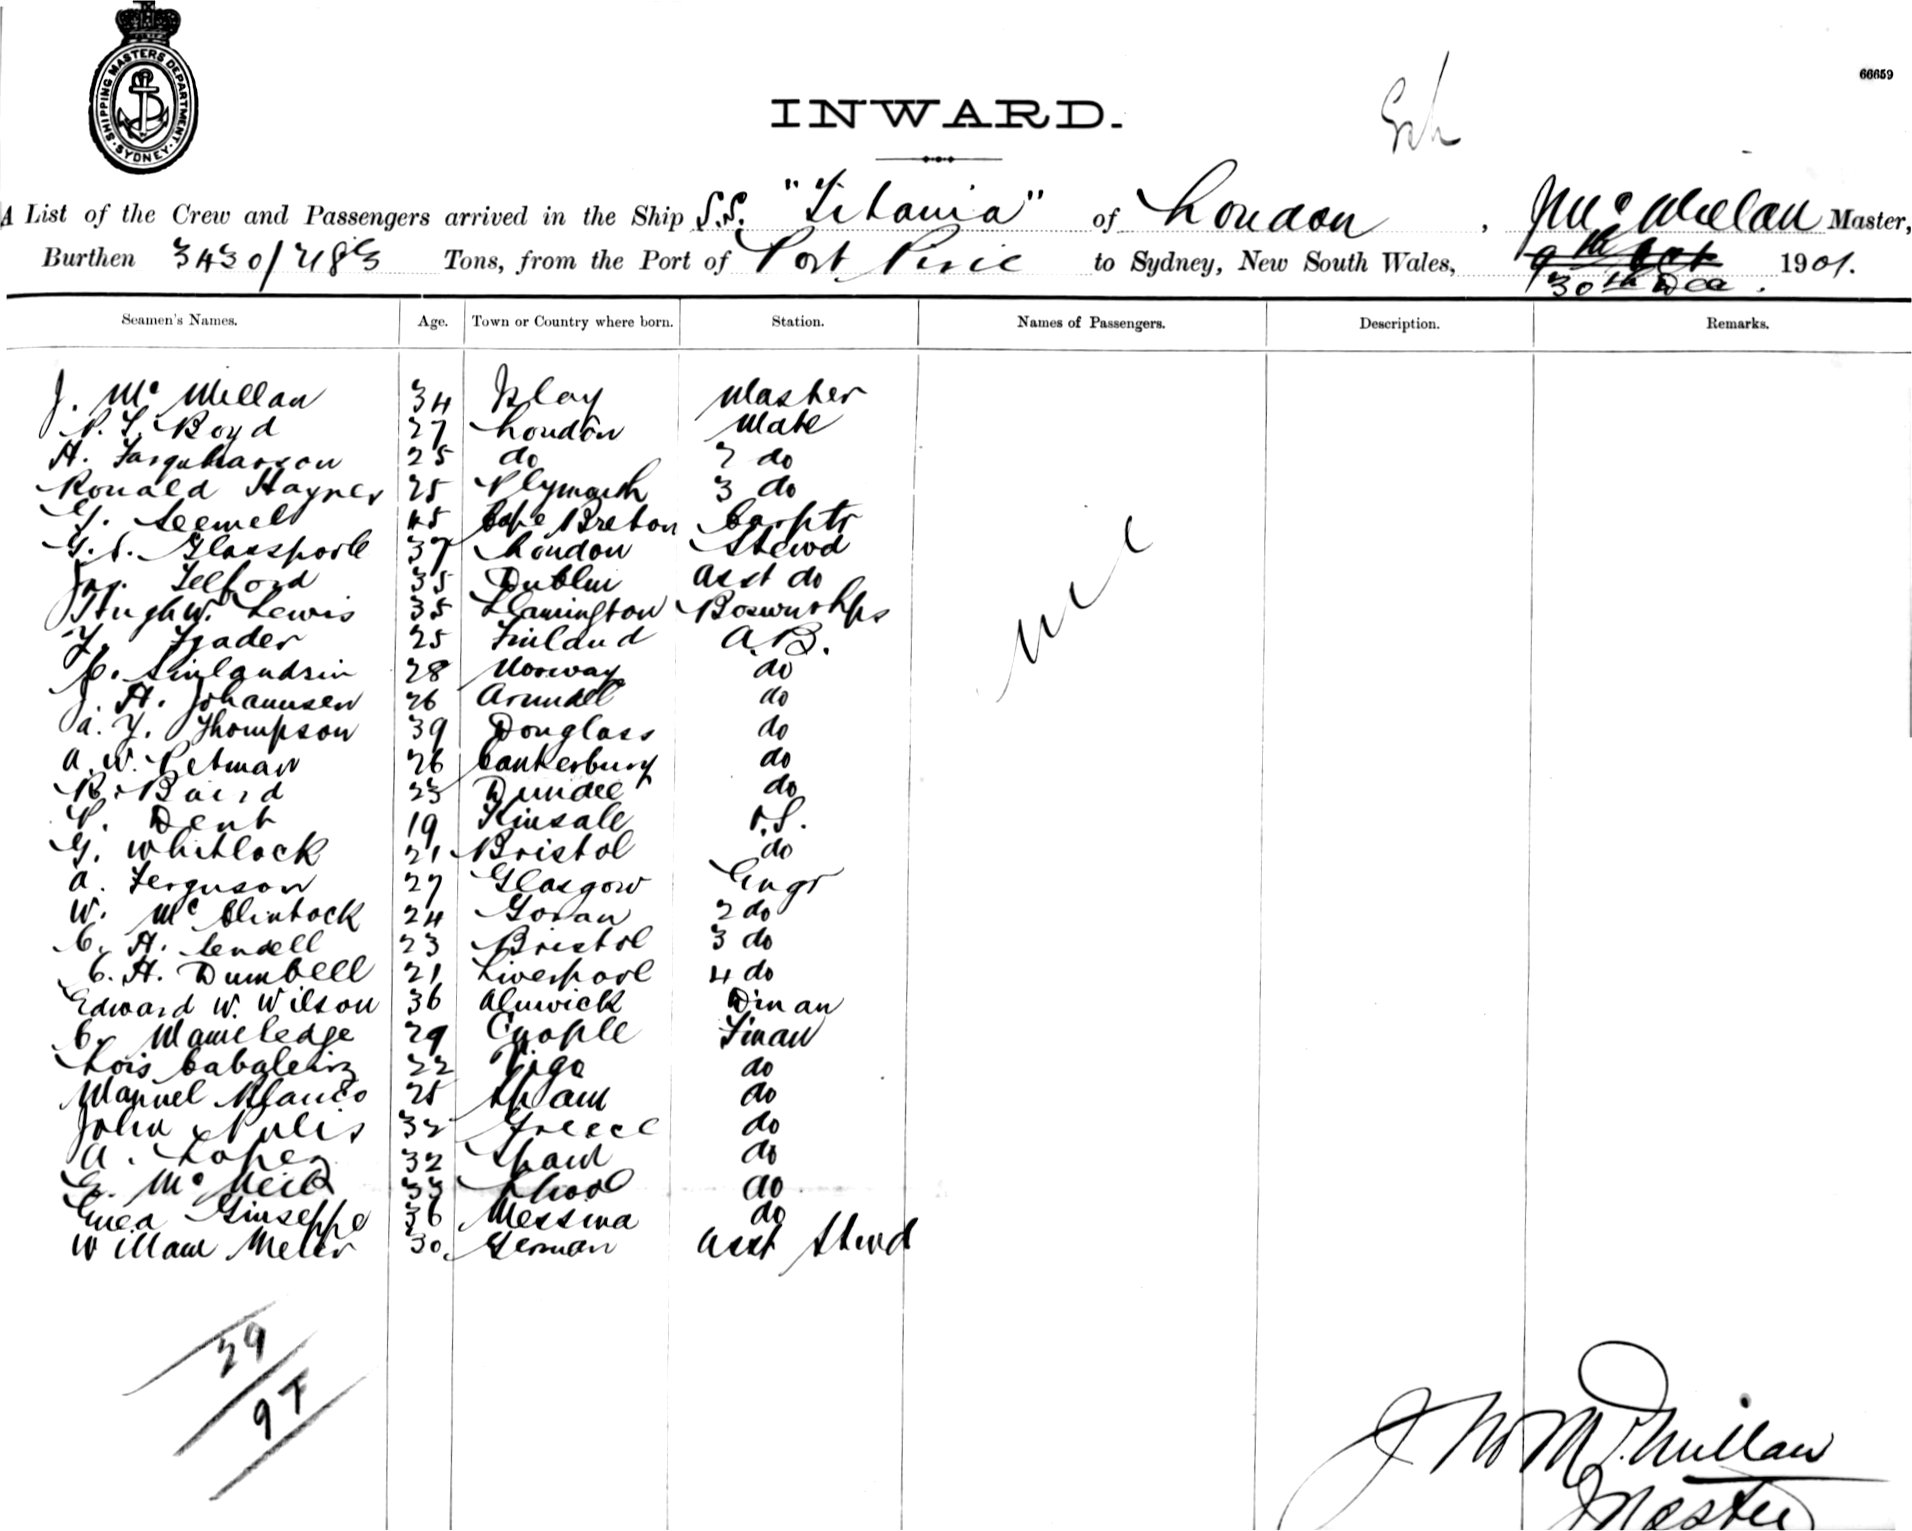 SHIPPING MASTERS DEPARTMENT. SYDNEY.
66659
INWARD.
A List of the Crew and Passengers arrived in the Ship S.S. "Titania" of London, J Mc Millan Master,
Burthen 3430/ Tons, from the Port of Port Pirie to Sydney, New South Wales, 9th Oct 1901.
30th Dec.
Seamen's Names. Age. Town or Country where born. Station. Names of Passengers. Description. Remarks.
J. Mc Millan 34 Islay Master
P. T. Boyd 27 London Mate
H. Farquharson 25 do 2 do
Ronald Haynes 25 Plymouth 3 do
G. 45 Cape Breton Carptr
G. S. Glasspoole 37 London Stewd
Jas. Telford 35 Dublin Asst do
Hugh W. Lewis 35 Llamington
25 Finland A.B.
28 Norway do
J. H. Johannsen 26 Arundel do
A. J. Thompson 39 Douglass do
A. W. Petman 26 Canterbury do
R. Baird 23 Dundee do
P. Dent 19 Kinsale O.S.
G. Whitlock 21 Bristol do
A. Ferguson 27 Glasgow Engr
W. Mc Clintock 24 Govan 2 do
C. H. Cendell 23 Bristol 3 do
C. H. Dumbell 21 Liverpool 4 do
Edward W. Wilson 36 Alnwick Dman
C. 29 Fman
Lois Cabaleiro 22 Vigo do
Manuel Blanco 25 Spain do
John Pulis 32 Greece do
A. Lopez 32 Spain do
G. Mc Neil 33 Lpool do
Giuseppe 36 Messina do
Willam Meler 30 German Asst Stewd
nil
29
97
J Mc Millan
Master